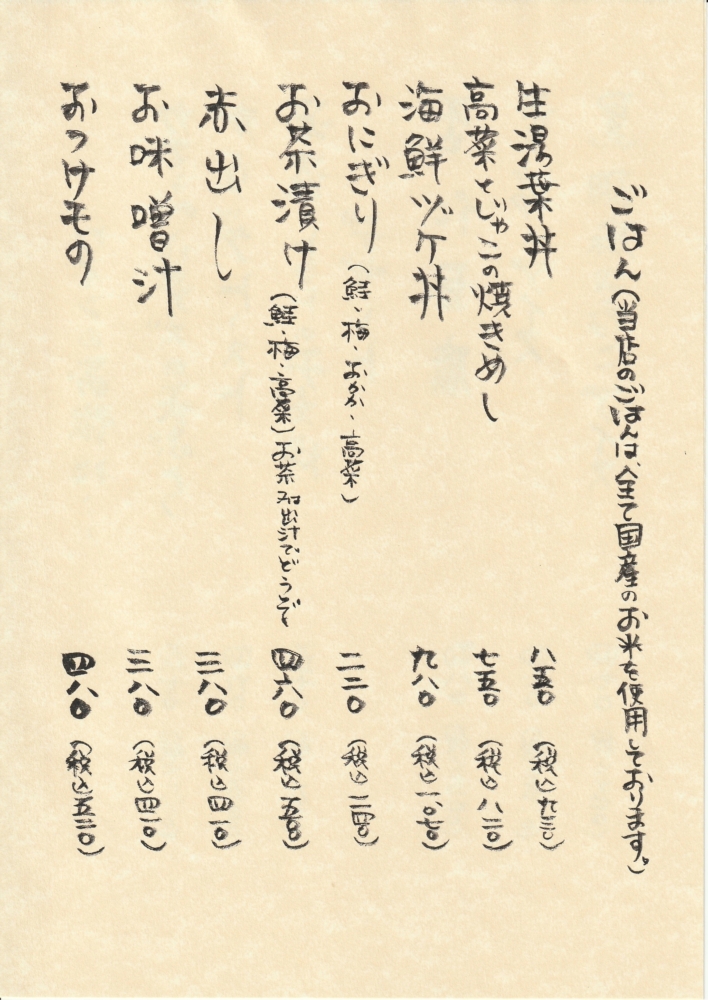 ごはん(当店のごはんは、全て国産のお米を使用しております。)
生湯葉丼 八五〇 (税込九三〇)
高菜とじゃこの焼きめし 七五〇 (税込八二〇)
海鮮ヅケ丼 九八〇 (税込一、〇七〇)
おにぎり(鮭・梅・おかか・高菜) 二二〇 (税込二四〇)
お茶漬け(鮭・梅・高菜)お茶又は出汁でどうぞ 四六〇 (税込五〇〇)
赤出し 三八〇 (税込四一〇)
お味噌汁 三八〇 (税込四一〇)
おつけもの 四八〇 (税込五二〇)